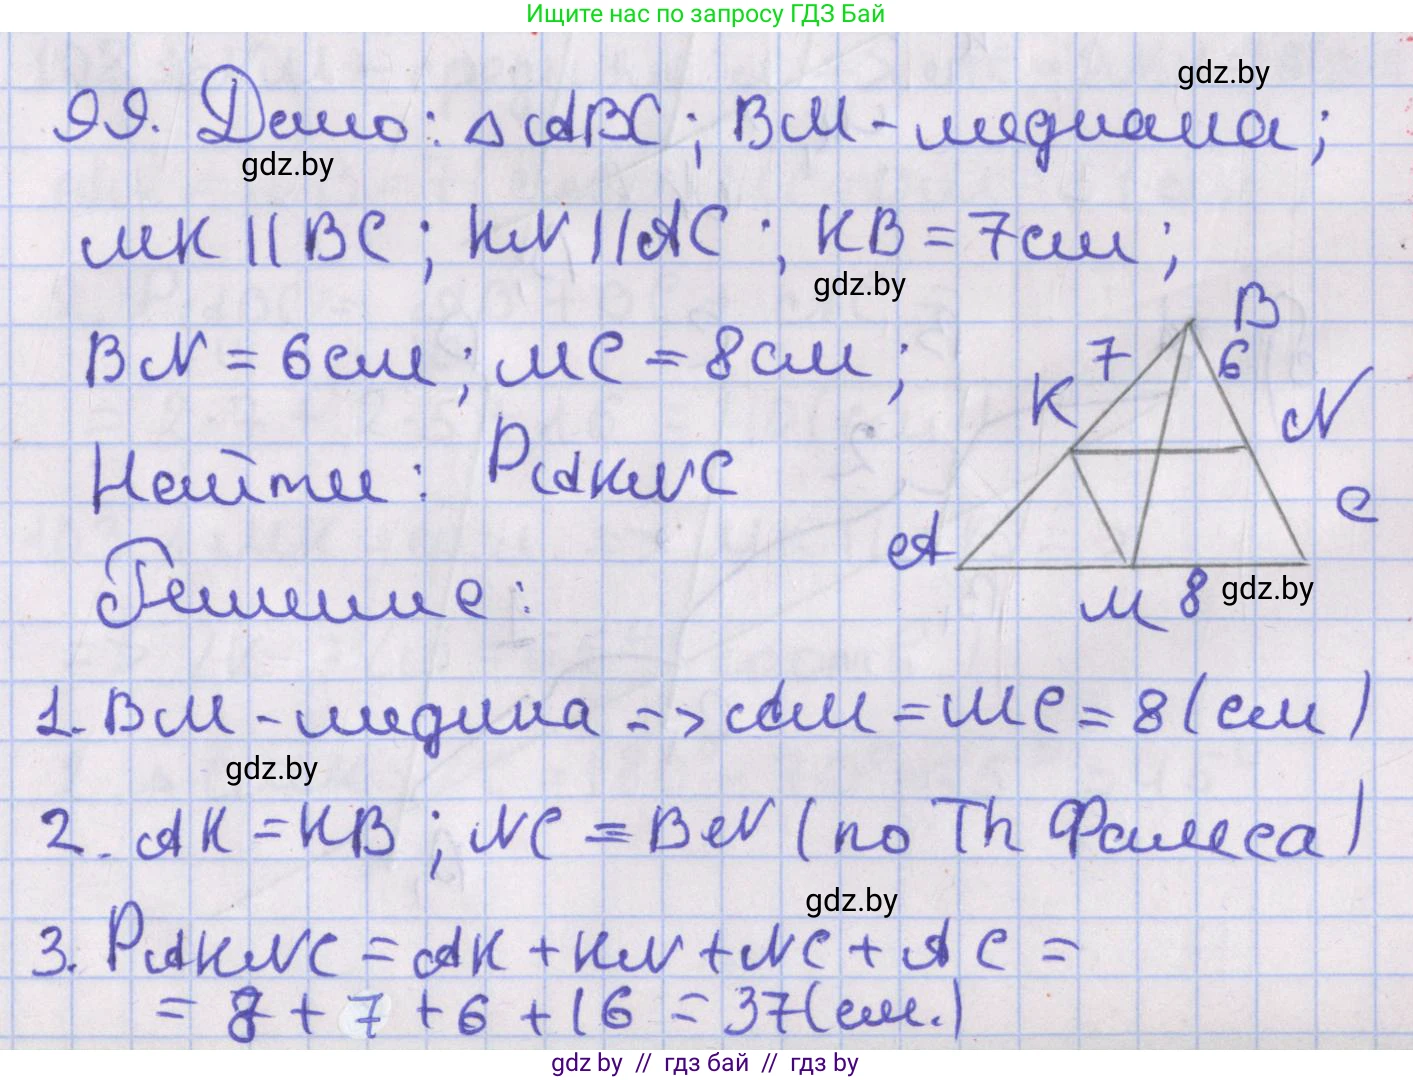 Ищите нас по запросу ГДЗ Бай
gdz.by
99. Дано: △ABC; BM - медиана;
gdz.by
MK || BC; KN || AC; KB = 7см;
gdz.by
BN = 6см; MC = 8см;
Найти: PAKNC
B
7
6
K
N
C
A
M
8
gdz.by
Решение:
1. BM - медина => AM = MC = 8 (см)
gdz.by
2. AK = KB; NC = BN (по Th Фалеса)
gdz.by
3. PAKNC = AK + KN + NC + AC =
= 8 + 7 + 6 + 16 = 37 (см.)
gdz.by // гдз бай // гдз by